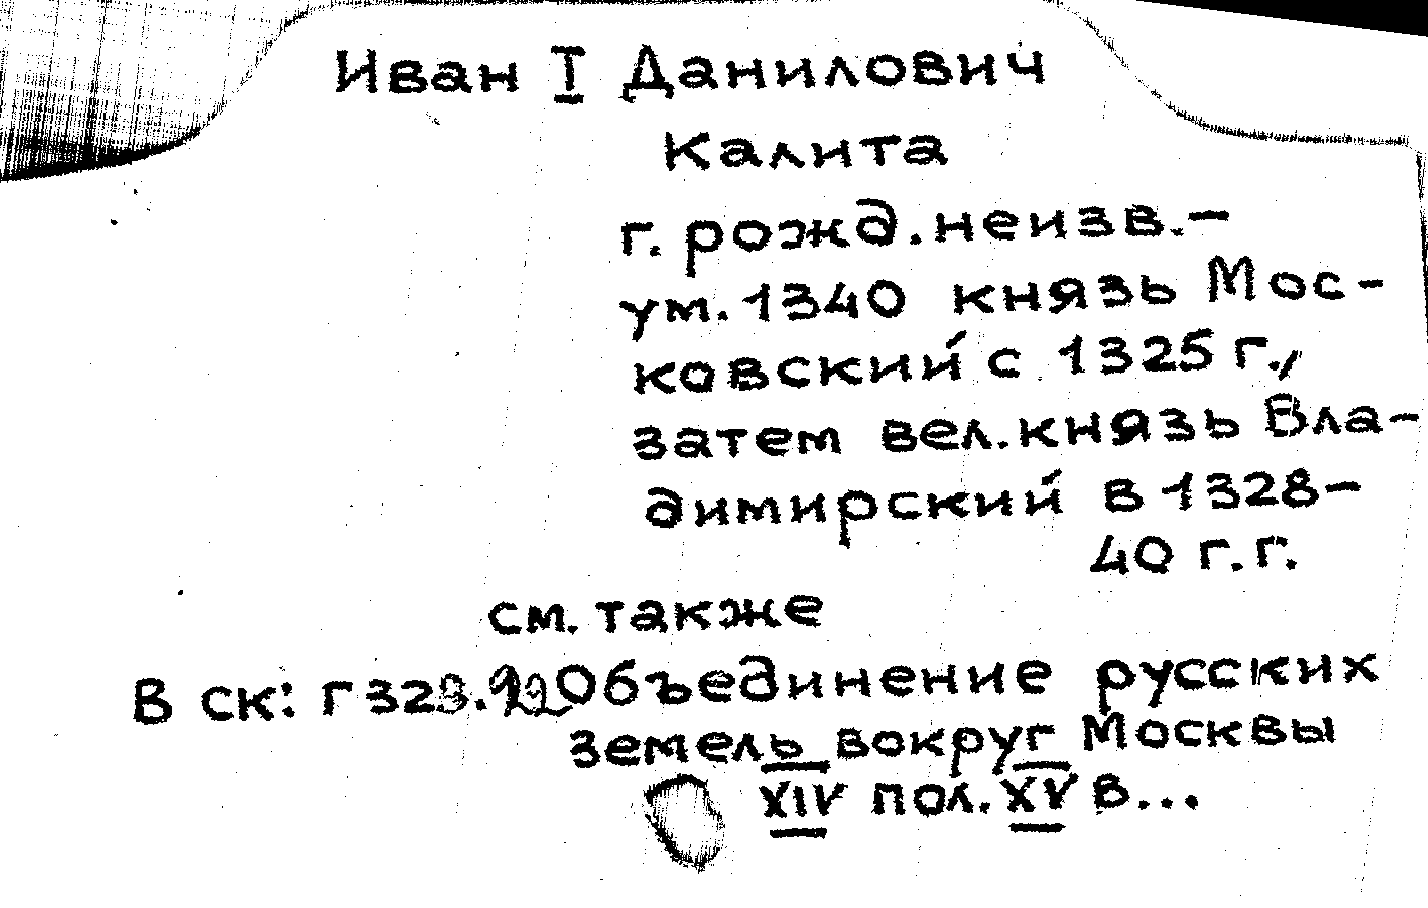 Иван I Данилович
Калита
г. рожд. неизв. –
ум. 1340 князь Мос-
ковский с 1325 г.,
затем вел. князь Вла-
димирский в 1328–
40 г.г.
см. также
В ск: Объединение русских
земель вокруг Москвы
XIV пол. XV в...